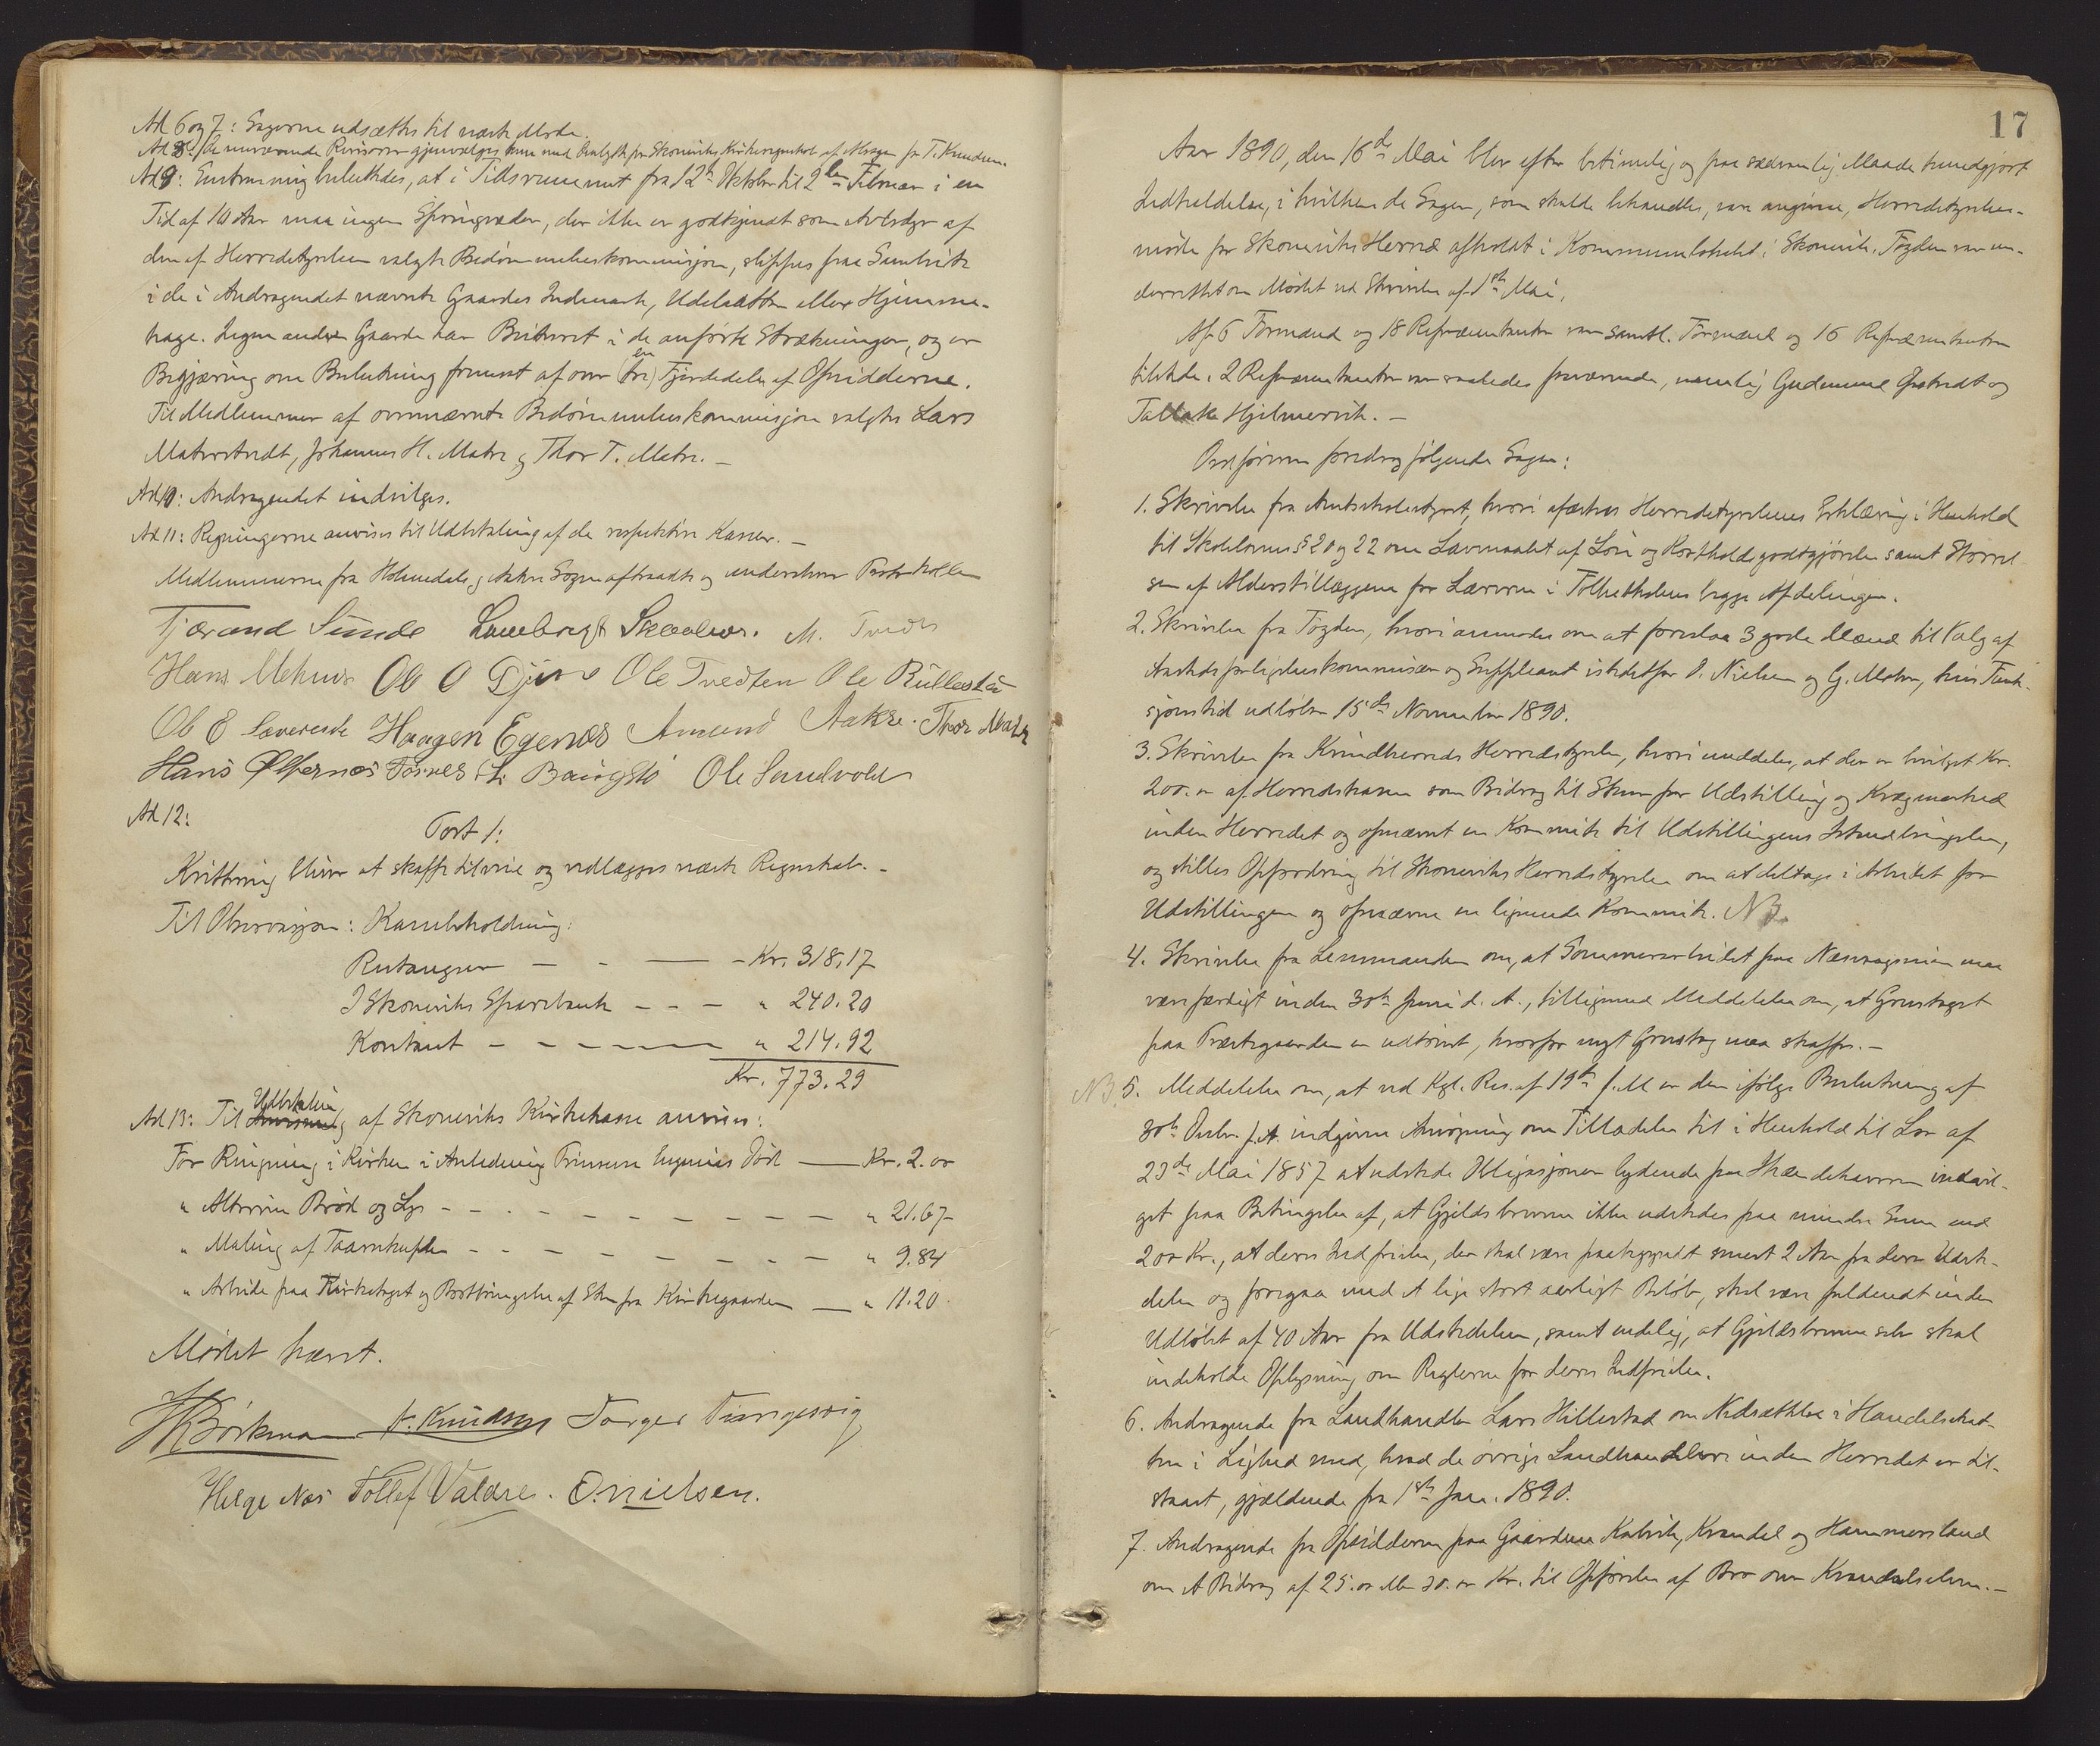 Ad 6 og 7: Sagerne udsættes til næste Møde.
Ad 8: De nuværende Revisorer gjenvælges kun med for Skoneviks Kirkeregnskab af Aksagen for T. Knudsen.
Ad 9: Enstemmig besluttedes, at i Tidsrummet fra 12te Oktober til 2den Februar i en
Tid af 10 Aar maa ingen Springvæder, der ikke er godkjendt som Avlsdyr af
den af Herredstyrelsen valgte Bedømmelseskommisjon, slippes paa Sambeite
i de i Andragendet nævnte Gaardes Indmark, Udslaatter eller Hjemme-
hage. Ingen anden Gaarde har Beiteret i de anførte Strækninger, og er
Begjæring om Beslutning fremsat af over (tre) en Fjerdedele af Opsidderne.
Til Medlemmer af ovennævnte Bedømmelseskommisjon valgtes Lars
Matrestrødt, Johannes H. Matre og Thor T. Matre. —
Ad 10: Andragendet indvilges.
Ad 11: Regningerne anvises til Udbetaling af de respektive Kasser. —
Medlemmerne fra Holmedals og Aakre Sogne aftraadte og underskrev Protokollen
Tjærand Sunde Lambregt Skaalnes. M. Tveder
Hans Mehus Ole O Djuve Ole Tvedten Ole Rullestad
Ole E Sævereide Haagen Egenæs Amund Aakre. Thor Matre
Hans Ølfernæs Tosnes Baugstø Ole Sandvold
Ad 12:
Post 1:
Kvittering bliver at skaffe tilveie og vedlægges næste Regnskab. —
Til Observasjon: Kassebeholdning:
Restanser — - — - Kr. 318,17
I Skoneviks Sparebank - - — " 240.20
Kontant - - - — — " 214.92
Kr. 773.29
Ad 13: Til Udbetaling af Skoneviks Kirkekasse anvises:
For Ringning i Kirken i Anledning Prinsesse Eugenies Død — Kr. 2.00
" Altervin Brød og Lys - - - - - - — " 21.67
" Maling af Taarnkuplen - - - - - — " 9.84
" Arbeide paa Kirketaget og Bortbringelse af Sten fra Kirkegaarden — " 11.20
Mødet hævet.
H Børkman K. Knudsen Torger Tungesvig
Helge Næs Tollef Valdres. O. Nielsen.
17
Aar 1890, den 16de Mai blev efter betimelig og paa sædvanlig Maade kundgjort
Indkaldelse, i hvilken de Sager, som skulde behandles, var angivne, Herredstyrelses-
møde for Skoneviks Herred afholdt i Kommunelokalet i Skonevik. Fogden var un-
derrettet om Mødet ved Skrivelse af 1ste Mai.
Af 6 Formænd og 18 Repræsentanter var samtl. Formænd og 16 Repræsentanter
tilstede. 2 Repræsentanter var saaledes fraværende, nemlig Gudmund Opstvedt og
Tallak Hjelmervik. —
Ordføreren foredrog følgende Sager:
1. Skrivelse fra Amtsskolestyret, hvori æskes Herredstyrelsens Erklæring i Henhold
til Skolelovens § 20 og 22 om Lavmaalet af Løn og Kostholdgodtgjørelse samt Størrel-
sen af Alderstillæggene for Lærerne i Folkeskolens begge Afdelinger.
2. Skrivelse fra Fogden, hvori anmodes om at foreslaa 3 gode Mænd til Valg af
Amtsforligelseskommissær og Suppleant istedetfor O. Nielsen og G. Matre, hvis Funk-
sjonstid udløber 15de November 1890.
3. Skrivelse fra Kvindherreds Herredstyrelse, hvori meddeles, at der er bevilget Kr.
200.00 af Herredskassen som Bidrag til Skuer for Udstilling og Kvægmarked
inden Herredet og opnævnt en Kommite til Udstillingens Istandbringelse,
og stilles Opfordring til Skoneviks Herredstyrelse om at deltage i Arbeidet for
Udstillingen og opnævne en lignende Kommite. NB.
4. Skrivelse fra Lensmanden om, at Sommerarbeidet paa Næsvagveien maa
være færdigt inden 30te Juni d. A., tilligemed Meddelelse om, at Grustaget
paa Præstegaarden er udtømt, hvorfor nyt Grustag maa skaffes. —
NB. 5. Meddelelse om, at ved Kgl. Res. af 19de f. M er den ifølge Beslutning af
30te Decbr. f. A. indgivne Ansøgning om Tilladelse til i Henhold til Lov af
23de Mai 1857 at udstede Obligasjoner lydende paa Ihændehaveren indvil-
get paa Betingelse af, at Gjeldsbrevene ikke udstedes paa mindre Sum end
200 Kr., at deres Indfrielse, der skal være paabegyndt senest 2 Aar fra deres Udste-
delse og foregaa med et lige stort aarligt Beløb, skal være fuldendt inden
Udløbet af 40 Aar fra Udstedelsen, samt endelig, at Gjeldsbrevene selv skal
indeholde Oplysning om Reglerne for deres Indfrielse.
6. Andragende fra Landhandler Lars Hillestad om Nedsættelse i Handelsskat-
ten i Lighed med, hvad de øvrige Landhandlere inden Herredet er til-
staaet, gjældende fra 1ste Jan. 1890.
7. Andragende fra Opsidderne paa Gaardene Kalvik, Kvandal og Hammersland
om et Bidrag af 25.00 eller 30.00 Kr. til Opførelse af Bro over Kvandalselven. —